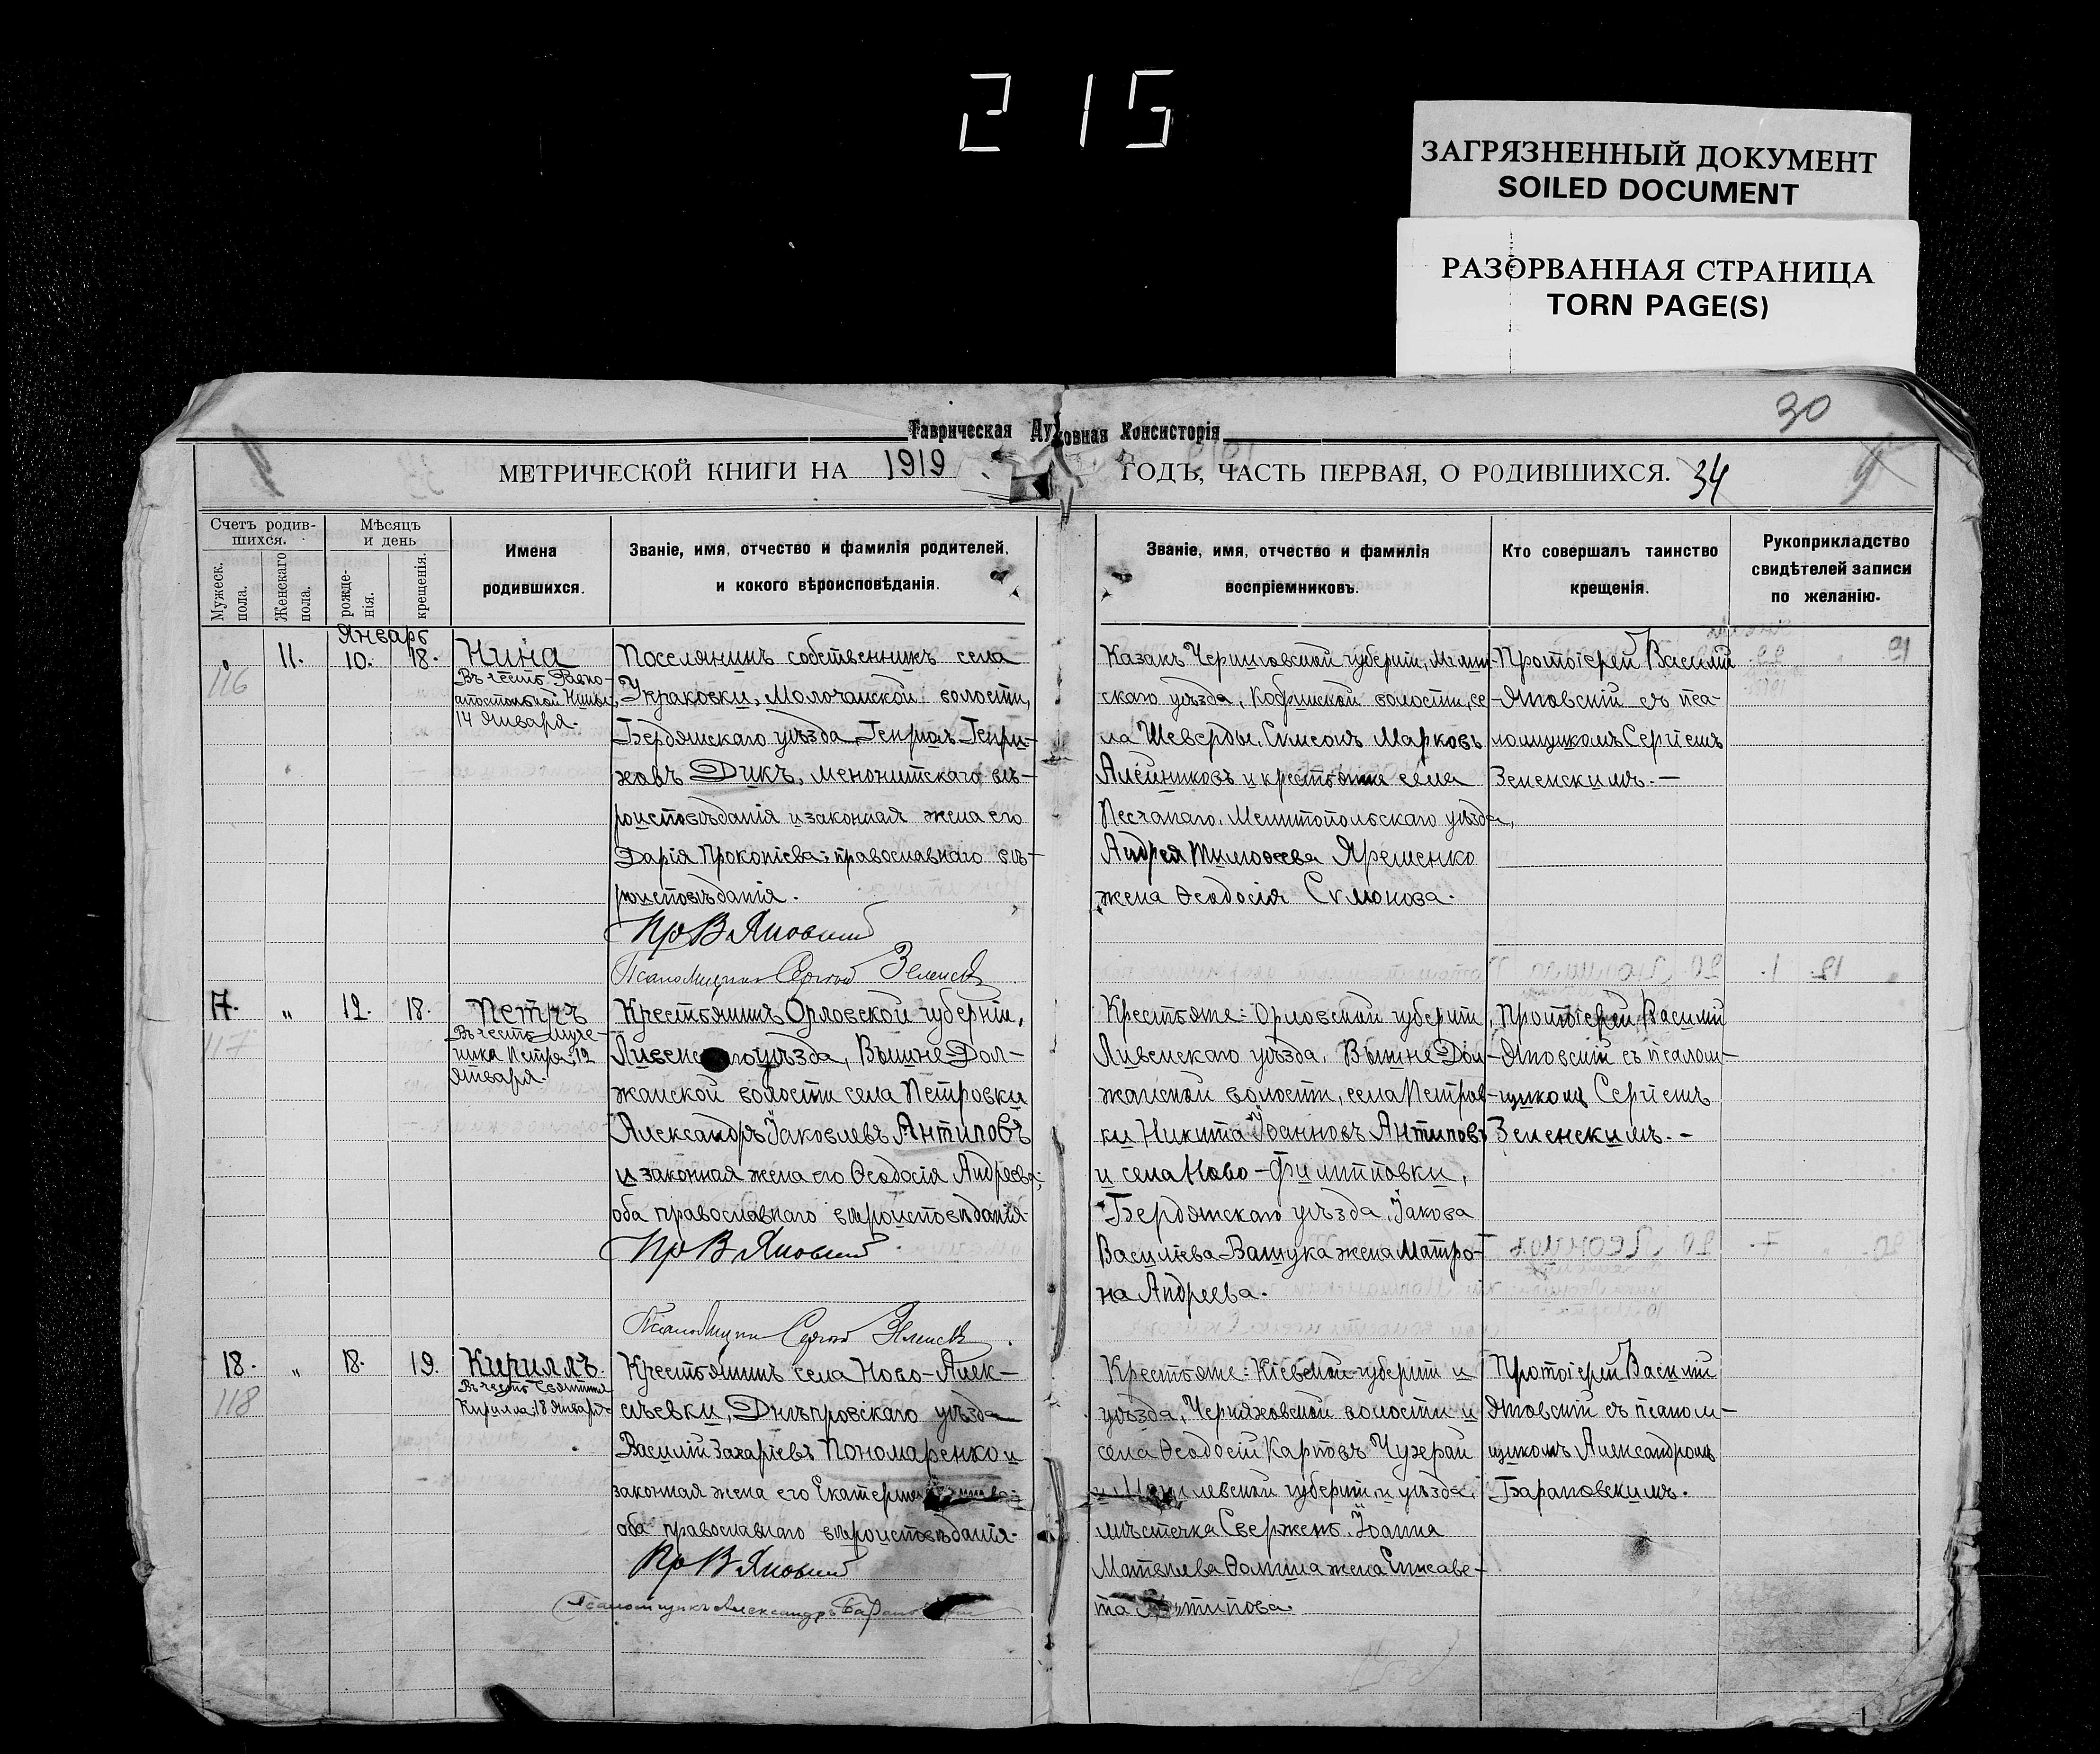 215
ЗАГРЯЗНЕННЫЙ ДОКУМЕНТ
SOILED DOCUMENT
РАЗОРВАННАЯ СТРАНИЦА
TORN PAGE(S)
30
Таврическая Духовная Консисторія
МЕТРИЧЕСКОЙ КНИГИ НА 1919
ГОДЪ, ЧАСТЬ ПЕРВАЯ, О РОДИВШИХСЯ. 34
Счетъ родив-
шихся.
Мужеск. пола.
Женскаго пола.
Мѣсяцъ
и день
рожде-
нія.
крещенія.
Имена
родившихся.
Званіе, имя, отчество и фамилія родителей,
и кокого вѣроисповѣданія.
Званіе, имя, отчество и фамилія
воспріемниковъ.
Кто совершалъ таинство
крещенія.
Рукоприкладство
свидѣтелей записи
по желанію.
Январь
" 11. 10. 18.
116
Нина
Въ честь Равно-
апостольной Нины,
14 Января.
Поселянинъ собственникъ села
Молочанской волости,
Бердянскаго уѣзда, Генрихъ Генри-
ховъ Дикъ, менонитскаго вѣ-
роисповѣданія и законная жена его
Дарія Прокопіева: православнаго вѣ-
роисповѣданія.
Пр В Яновскій
Псаломщикъ Сергій Зеленскій
Казакъ Черниговской губерніи,
скаго уѣзда, волости, се-
ла Шеверды, Симеонъ Марковъ
Алейниковъ и крестьянина села
Песчанаго, Мелитопольскаго уѣзда,
Андрея Тимофеева Ярешенко
жена Ѳеодосія Симонова.
Протоіерей Василій
Яновскій съ пса-
ломщикомъ Сергіемъ
Зеленскимъ.-
17. " 12. 18.
117
Петръ
Въ честь муче-
ника Петра, 12
Января.
Крестьянинъ Орловской губерніи,
уѣзда, Вышне-Дол-
жанской волости села Петровки
Александръ Іаковлевъ Антиповъ
и законная жена его Ѳеодосія Андреева;
оба православнаго вѣроисповѣданія.
Пр В Яновскій
Псаломщикъ Сергій Зеленскій
Крестьяне: Орловской губерніи,
Ливенскаго уѣзда, Вышне-Дол-
жанской волости, села Петров-
ки Никита Іоанновъ Антиповъ
и села Ново-Филипповки,
Бердянскаго уѣзда, Іакова
Василіева Ващука жена Матро-
на Андреева.
Протоіерей Василій
Яновскій съ псалом-
щикомъ Сергіемъ
Зеленскимъ.-
18. " 18. 19.
118
Кириллъ
Въ честь Святителя
Кирилла, 18 Января.
Крестьянинъ села Ново-Алек-
сѣевки, Днѣпровскаго уѣзда
Василій Захаріевъ Пономаренко и
законная жена его
оба православнаго вѣроисповѣданія.
Пр В Яновскій
Псаломщикъ Александръ
Крестьяне: Кіевской губерніи и
уѣзда, Черняховской волости и
села Ѳеодосій Карповъ
губерніи и уѣзда,
мѣстечка Свержень, Іоанна
Матвѣева Ѳомина жена Елисаве-
та
Протоіерей Василій
Яновскій съ псалом-
щикомъ Александромъ
Барановскимъ.